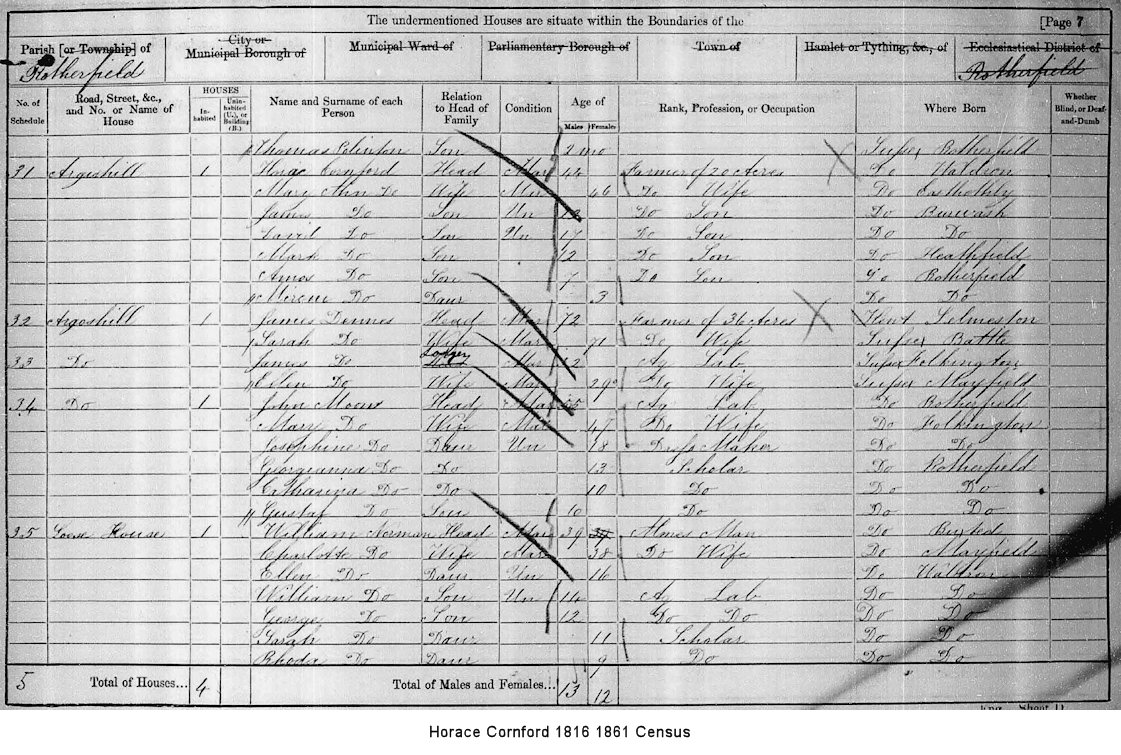 The undermentioned Houses are situate within the Boundaries of the [Page 7
Parish [or Township] of City or Municipal Borough of Municipal Ward of Parliamentary Borough of Town of Hamlet or Tything, &c., of Ecclesiastical District of
Rotherfield Rotherfield
No. of Schedule Road, Street, &c., and No. or Name of House HOUSES Inhabited Uninhabited (U.), or Building (B.) Name and Surname of each Person Relation to Head of Family Condition Age of Males Females Rank, Profession, or Occupation Where Born Whether Blind, or Deaf-and-Dumb
Thomas Son 2 mo Sussex Rotherfield
31 Argoshill 1 Horace Cornford Head Mar 44 Farmer of 20 Acres Do Waldron
Mary Ann Do Wife Mar 46 Do Wife Do
James Do Son Un Do Son Do Burwash
David Do Son Un 17 Do Son Do Do
Mark Do Son 12 Do Son Do Heathfield
Amos Do Son 7 Do Son Do Rotherfield
Do Daur 3 Do Do
32 Argoshill 1 James Dennes Head Mar 72 Farmer of 36 Acres Kent Selmeston
Sarah Do Wife Mar 71 Do Wife Sussex Battle
33 Do James Do Lodger Mar Ag Lab Sussex Folkington
Do Wife Mar 29 Do Wife Sussex Mayfield
34 Do 1 John Moon Head Mar Ag Lab Do Rotherfield
Mary Do Wife Mar 47 Do Wife Do Folkington
Josephine Do Daur Un 18 Dress Maker Do Do
Georgeanna Do Do 13 Scholar Do Rotherfield
Catharina Do Do 10 Do Do Do
Gustaf Do Son 10 Do Do Do
35 House 1 William Norman Head Mar 39 Do Buxted
Charlotte Do Wife Mar 38 Do Wife Do Mayfield
Ellen Do Daur Un 16 Do Waldron
William Do Son Un 14 Ag Lab Do Do
George Do Son 12 Do Do Do Do
Sarah Do Daur 11 Scholar Do Do
Rhoda Do Daur 9 Do Do Do
5 Total of Houses... 4 Total of Males and Females... 13 12
Horace Cornford 1816 1861 Census